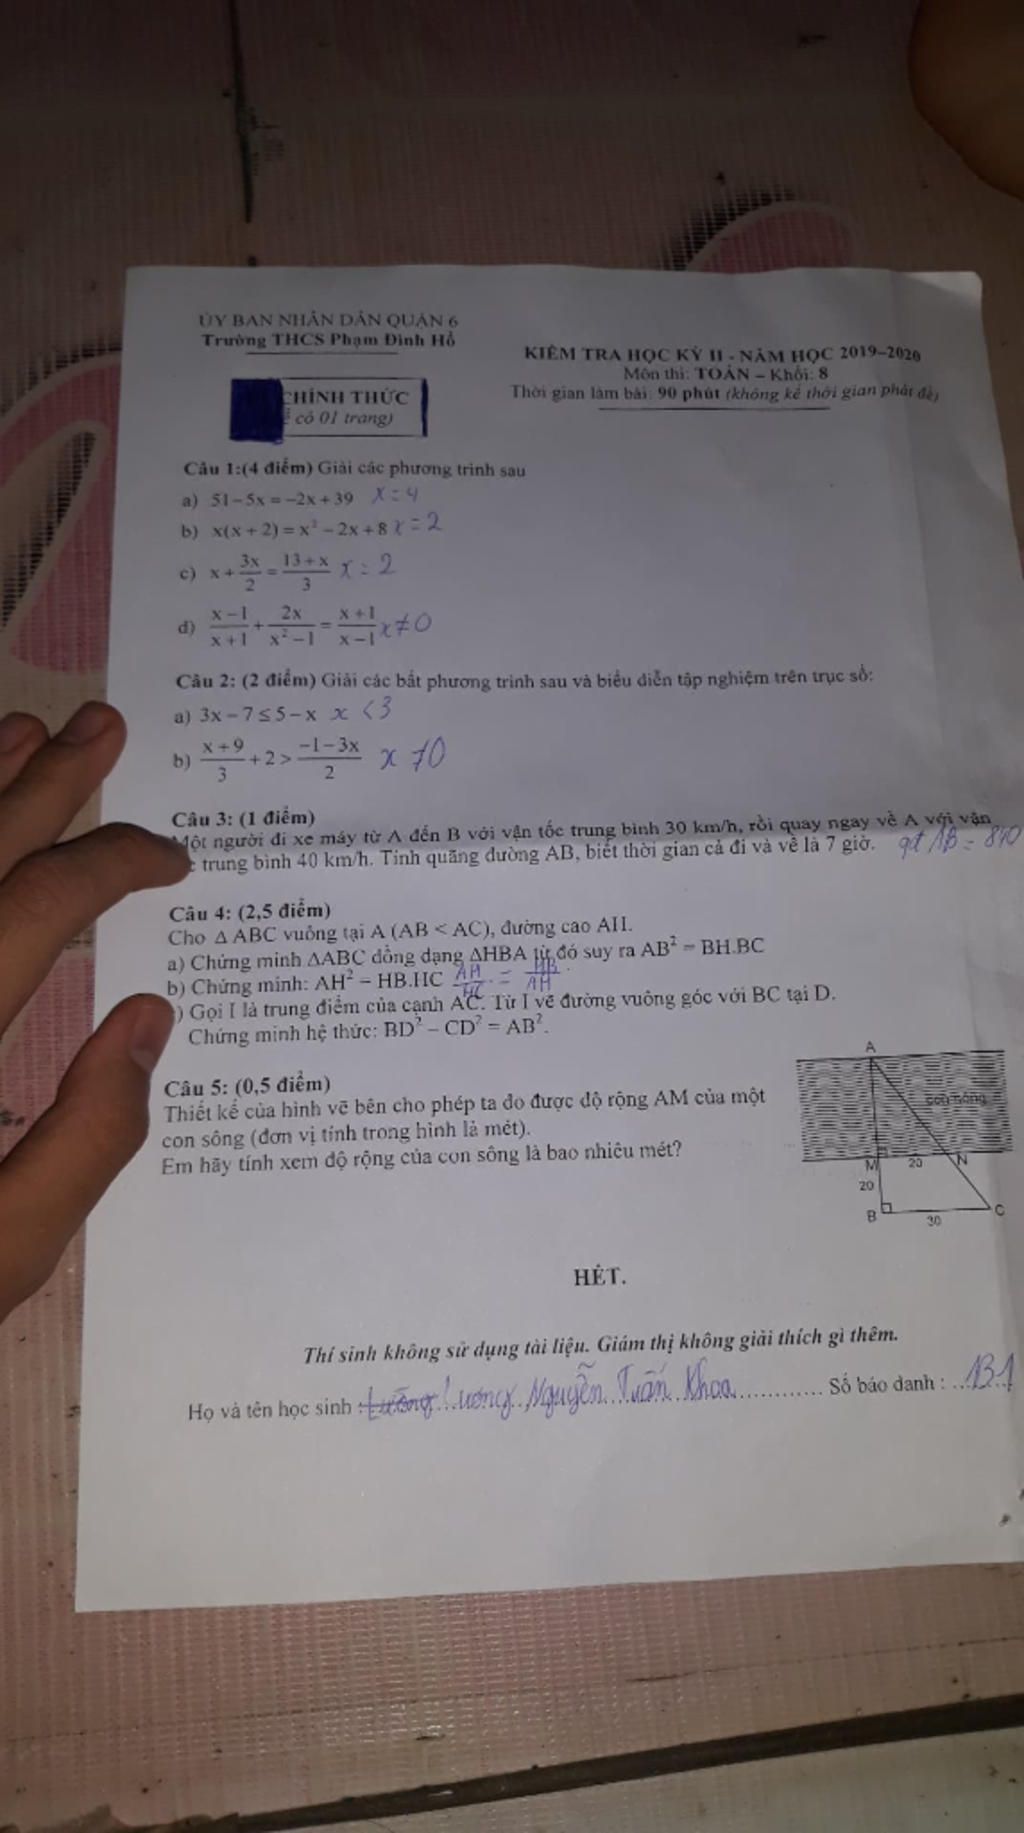 ỦY BAN NHÂN DÂN QUẬN 6
Trường THCS Phạm Đình Hổ
KIỂM TRA HỌC KỲ II - NĂM HỌC 2019–2020
Môn thi: TOÁN – Khối: 8
Thời gian làm bài: 90 phút (không kể thời gian phát đề)
CHÍNH THỨC
có 01 trang)
Câu 1:(4 điểm) Giải các phương trình sau
a) 51 – 5x = –2x + 39 x = 4
b) x(x + 2) = x² – 2x + 8 x = 2
c) x + 3x/2 = (13 + x)/3 x = 2
d) (x – 1)/(x + 1) + 2x/(x² – 1) = (x + 1)/(x – 1) x ≠ 0
Câu 2: (2 điểm) Giải các bất phương trình sau và biểu diễn tập nghiệm trên trục số:
a) 3x – 7 ≤ 5 – x x < 3
b) (x + 9)/3 + 2 > (–1 – 3x)/2 x
Câu 3: (1 điểm)
Một người đi xe máy từ A đến B với vận tốc trung bình 30 km/h, rồi quay ngay về A với vận
trung bình 40 km/h. Tính quãng đường AB, biết thời gian cả đi và về là 7 giờ. qđ AB = 840
Câu 4: (2,5 điểm)
Cho Δ ABC vuông tại A (AB < AC), đường cao AH.
a) Chứng minh ΔABC đồng dạng ΔHBA từ đó suy ra AB² = BH.BC
b) Chứng minh: AH² = HB.HC AH/HC = HB/AH
) Gọi I là trung điểm của cạnh AC. Từ I vẽ đường vuông góc với BC tại D.
Chứng minh hệ thức: BD² – CD² = AB².
Câu 5: (0,5 điểm)
Thiết kế của hình vẽ bên cho phép ta đo được độ rộng AM của một
con sông (đơn vị tính trong hình là mét).
Em hãy tính xem độ rộng của con sông là bao nhiêu mét?
A
con sông
M 20 N
20
B 30 C
HẾT.
Thí sinh không sử dụng tài liệu. Giám thị không giải thích gì thêm.
Họ và tên học sinh : Lương Nguyễn Tuấn Khoa Số báo danh : B1